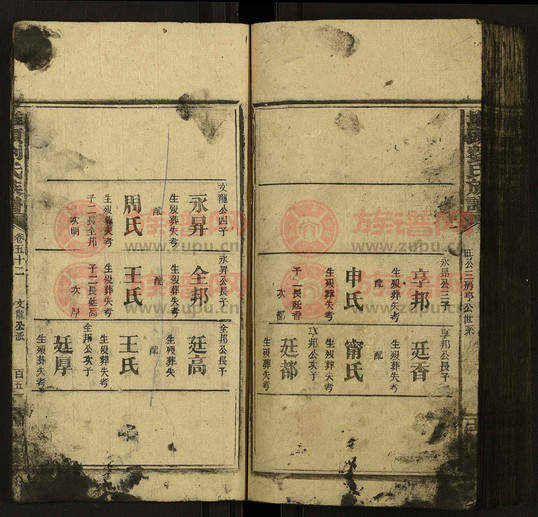 旺公三房亨公世系
永昇公三子
亨邦
生殁葬失考
配
申氏
生殁葬失考
子二長廷香
次都
亨邦公長子
廷香
生殁葬失考
配
甯氏
生殁葬失考
亨邦公次子
廷都
生殁葬失考
文龍公四子
永昇
生殁葬失考
配
周氏
生殁葬失考
子二長全邦
永昇公長子
全邦
生殁葬失考
配
王氏
生殁葬失考
子二長廷高
次厚
全邦公長子
廷高
生殁葬失考
配
王氏
生殁葬失考
全邦公次子
廷厚
生殁葬失考
氏族譜
卷五十二
文龍公派
百五
族谱网
www.zupu.cn
族谱网
www.zupu.cn